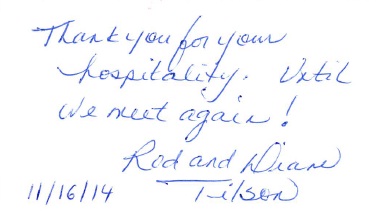 Thank you for your
hospitality. Until
we meet again!
Rod and Diane
11/16/14 Tilson